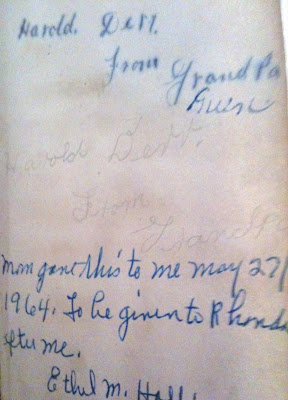 Harold. Dett.
From Grandpa
Auen
Harold Dett.
From
Grandpa
Mom gave this to me may 27/
1964. To be given to Rhonda
after me.
Ethel M. Hall